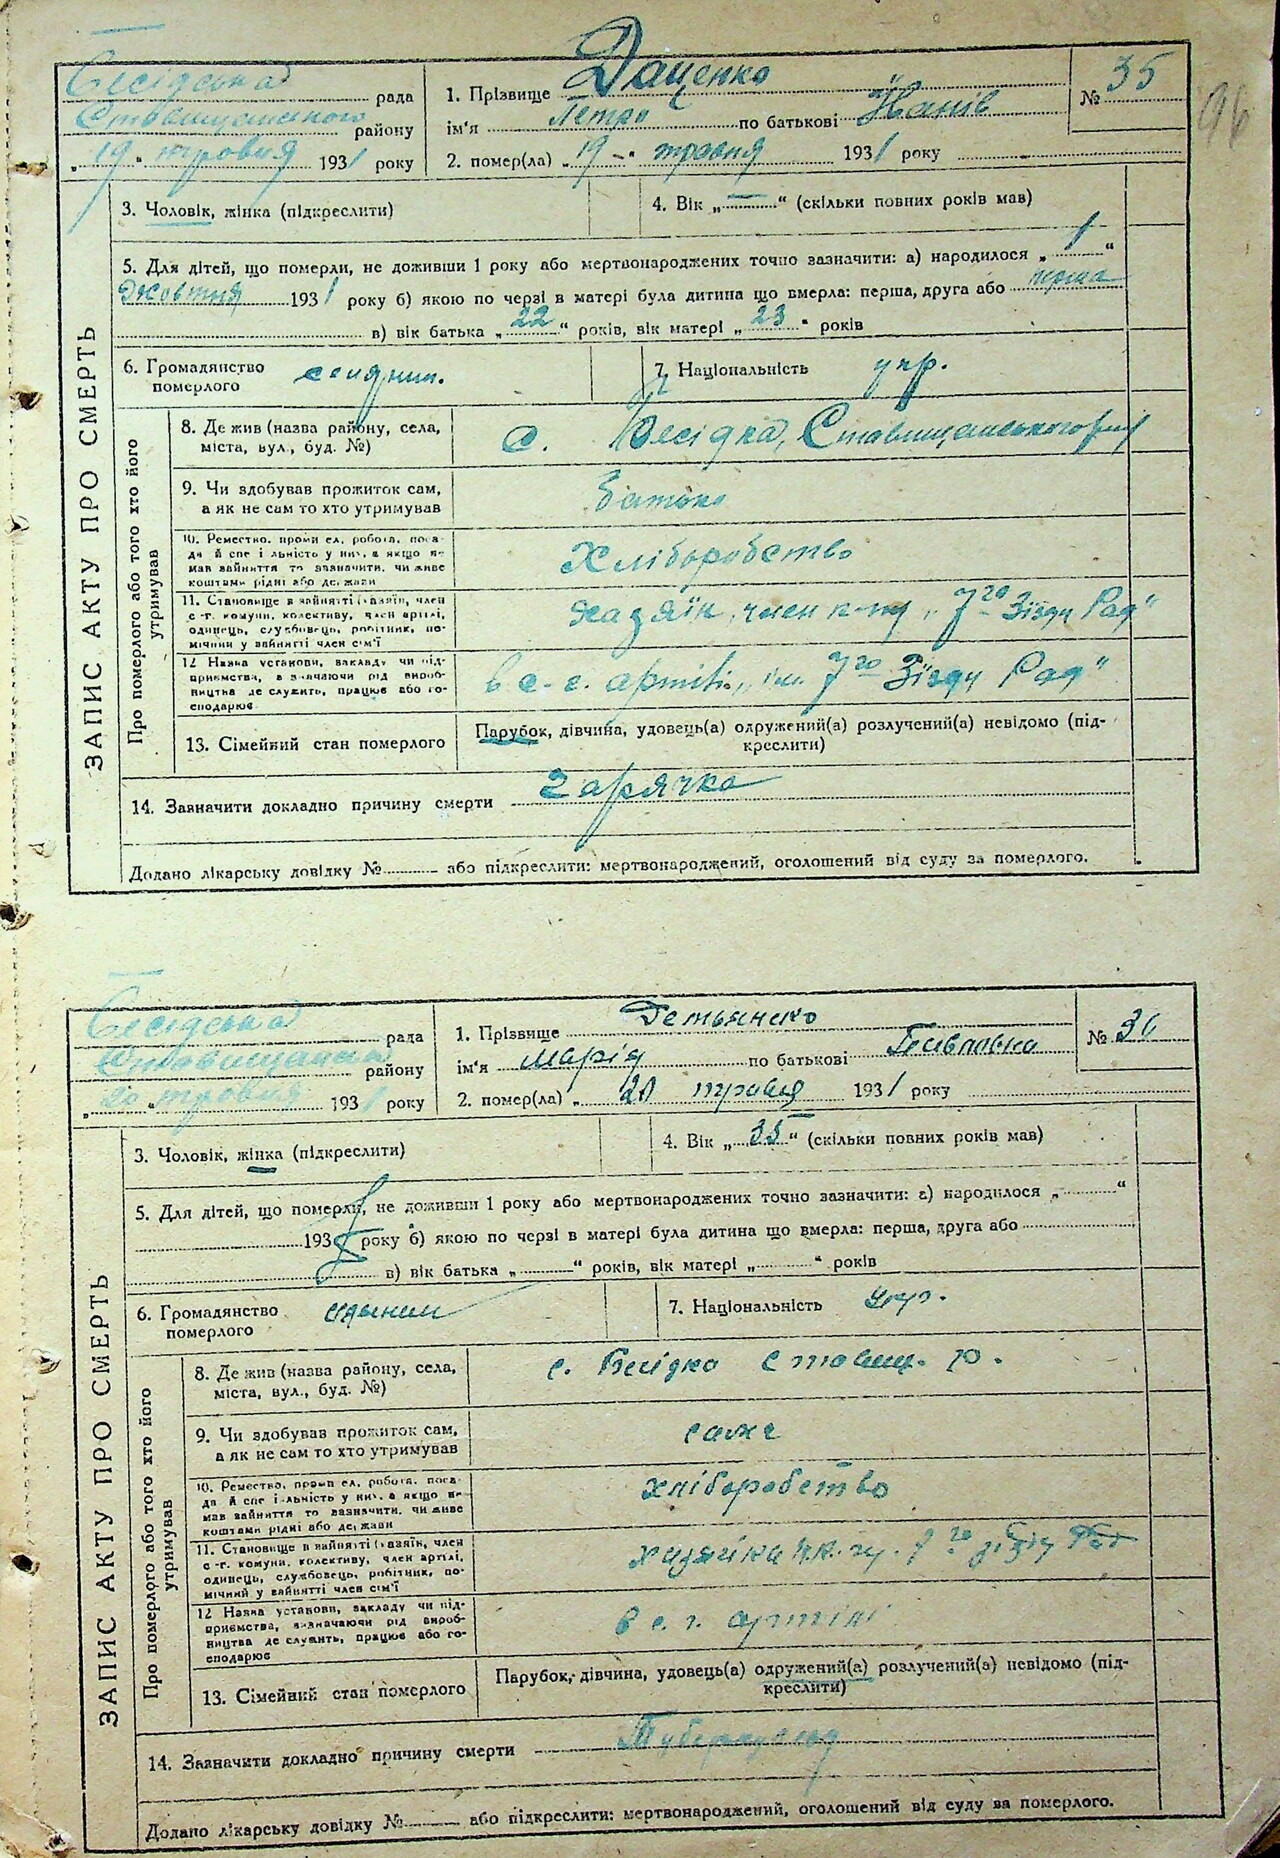 96
Бесідська рада
Ставищанського району
„19" травня 1931 року
1. Прізвище Даценко
ім'я Петро по батькові Йанів
2. помер(ла) „19" травня 1931 року
№ 35
ЗАПИС АКТУ ПРО СМЕРТЬ
3. Чоловік, жінка (підкреслити)
4. Вік „—" (скільки повних років мав)
5. Для дітей, що померли, не доживши 1 року або мертвонароджених точно зазначити: а) народилося „1"
Жовтня 1931 року б) якою по черзі в матері була дитина що вмерла: перша, друга або перша
в) вік батька „22" років, вік матері „23" років
6. Громадянство
померлого
7. Національність укр.
Про померлого або того хто його
утримував
8. Де жив (назва району, села,
міста, вул., буд. №)
с. Бесідка, Ставищанського р-ну
9. Чи здобував прожиток сам,
а як не сам то хто утримував
батько
10. Ремество, промисел, робота, поса-
да й спеціяльність у них, а якщо не
мав зайняття то зазначити, чи живе
коштами рідні або держави
Хліборобство
11. Становище в зайнятті (хазяїн, член
с-г. комуни, колективу, член артілі,
одинець, службовець, робітник, по-
мічний у зайнятті член сім'ї
хазяїн, член к-пу „7го Зїзду Рад"
12 Назва установи, закладу чи під-
приємства, зазначаючи рід вироб-
ництва де служить, працює або го-
сподарює
в с.-г. артілі „ім. 7го Зїзду Рад"
13. Сімейний стан померлого
Парубок, дівчина, удовець(а) одружений(а) розлучений(а) невідомо (під-
креслити)
14. Зазначити докладно причину смерти гарячка
Додано лікарську довідку № або підкреслити: мертвонароджений, оголошений від суду за померлого.
Бесідська рада
Ставищанськ району
„20" травня 1931 року
1. Прізвище Детьяненко
ім'я Марія по батькові Павловна
2. помер(ла) „20 травня 1931 року
№ 36
ЗАПИС АКТУ ПРО СМЕРТЬ
3. Чоловік, жінка (підкреслити)
4. Вік „35" (скільки повних років мав)
5. Для дітей, що померли, не доживши 1 року або мертвонароджених точно зазначити: а) народилося „ "
193 року б) якою по черзі в матері була дитина що вмерла: перша, друга або
в) вік батька „ " років, вік матері „ " років
6. Громадянство
померлого
7. Національність укр.
Про померлого або того хто його
утримував
8. Де жив (назва району, села,
міста, вул., буд. №)
с. Бесідка Ставищ. р.
9. Чи здобував прожиток сам,
а як не сам то хто утримував
сама
10. Ремество, промисел, робота, поса-
да й спеціяльність у них, а якщо не
мав зайняття то зазначити, чи живе
коштами рідні або держави
хліборобство
11. Становище в зайнятті (хазяїн, член
с-г. комуни, колективу, член артілі,
одинець, службовець, робітник, по-
мічний у зайнятті член сім'ї
хазяйка 7го зїзду Рад
12 Назва установи, закладу чи під-
приємства, зазначаючи рід вироб-
ництва де служить, працює або го-
сподарює
в с. г. артілі
13. Сімейний стан померлого
Парубок, дівчина, удовець(а) одружений(а) розлучений(а) невідомо (під-
креслити)
14. Зазначити докладно причину смерти Туберкульоз
Додано лікарську довідку № або підкреслити: мертвонароджений, оголошений від суду за померлого.